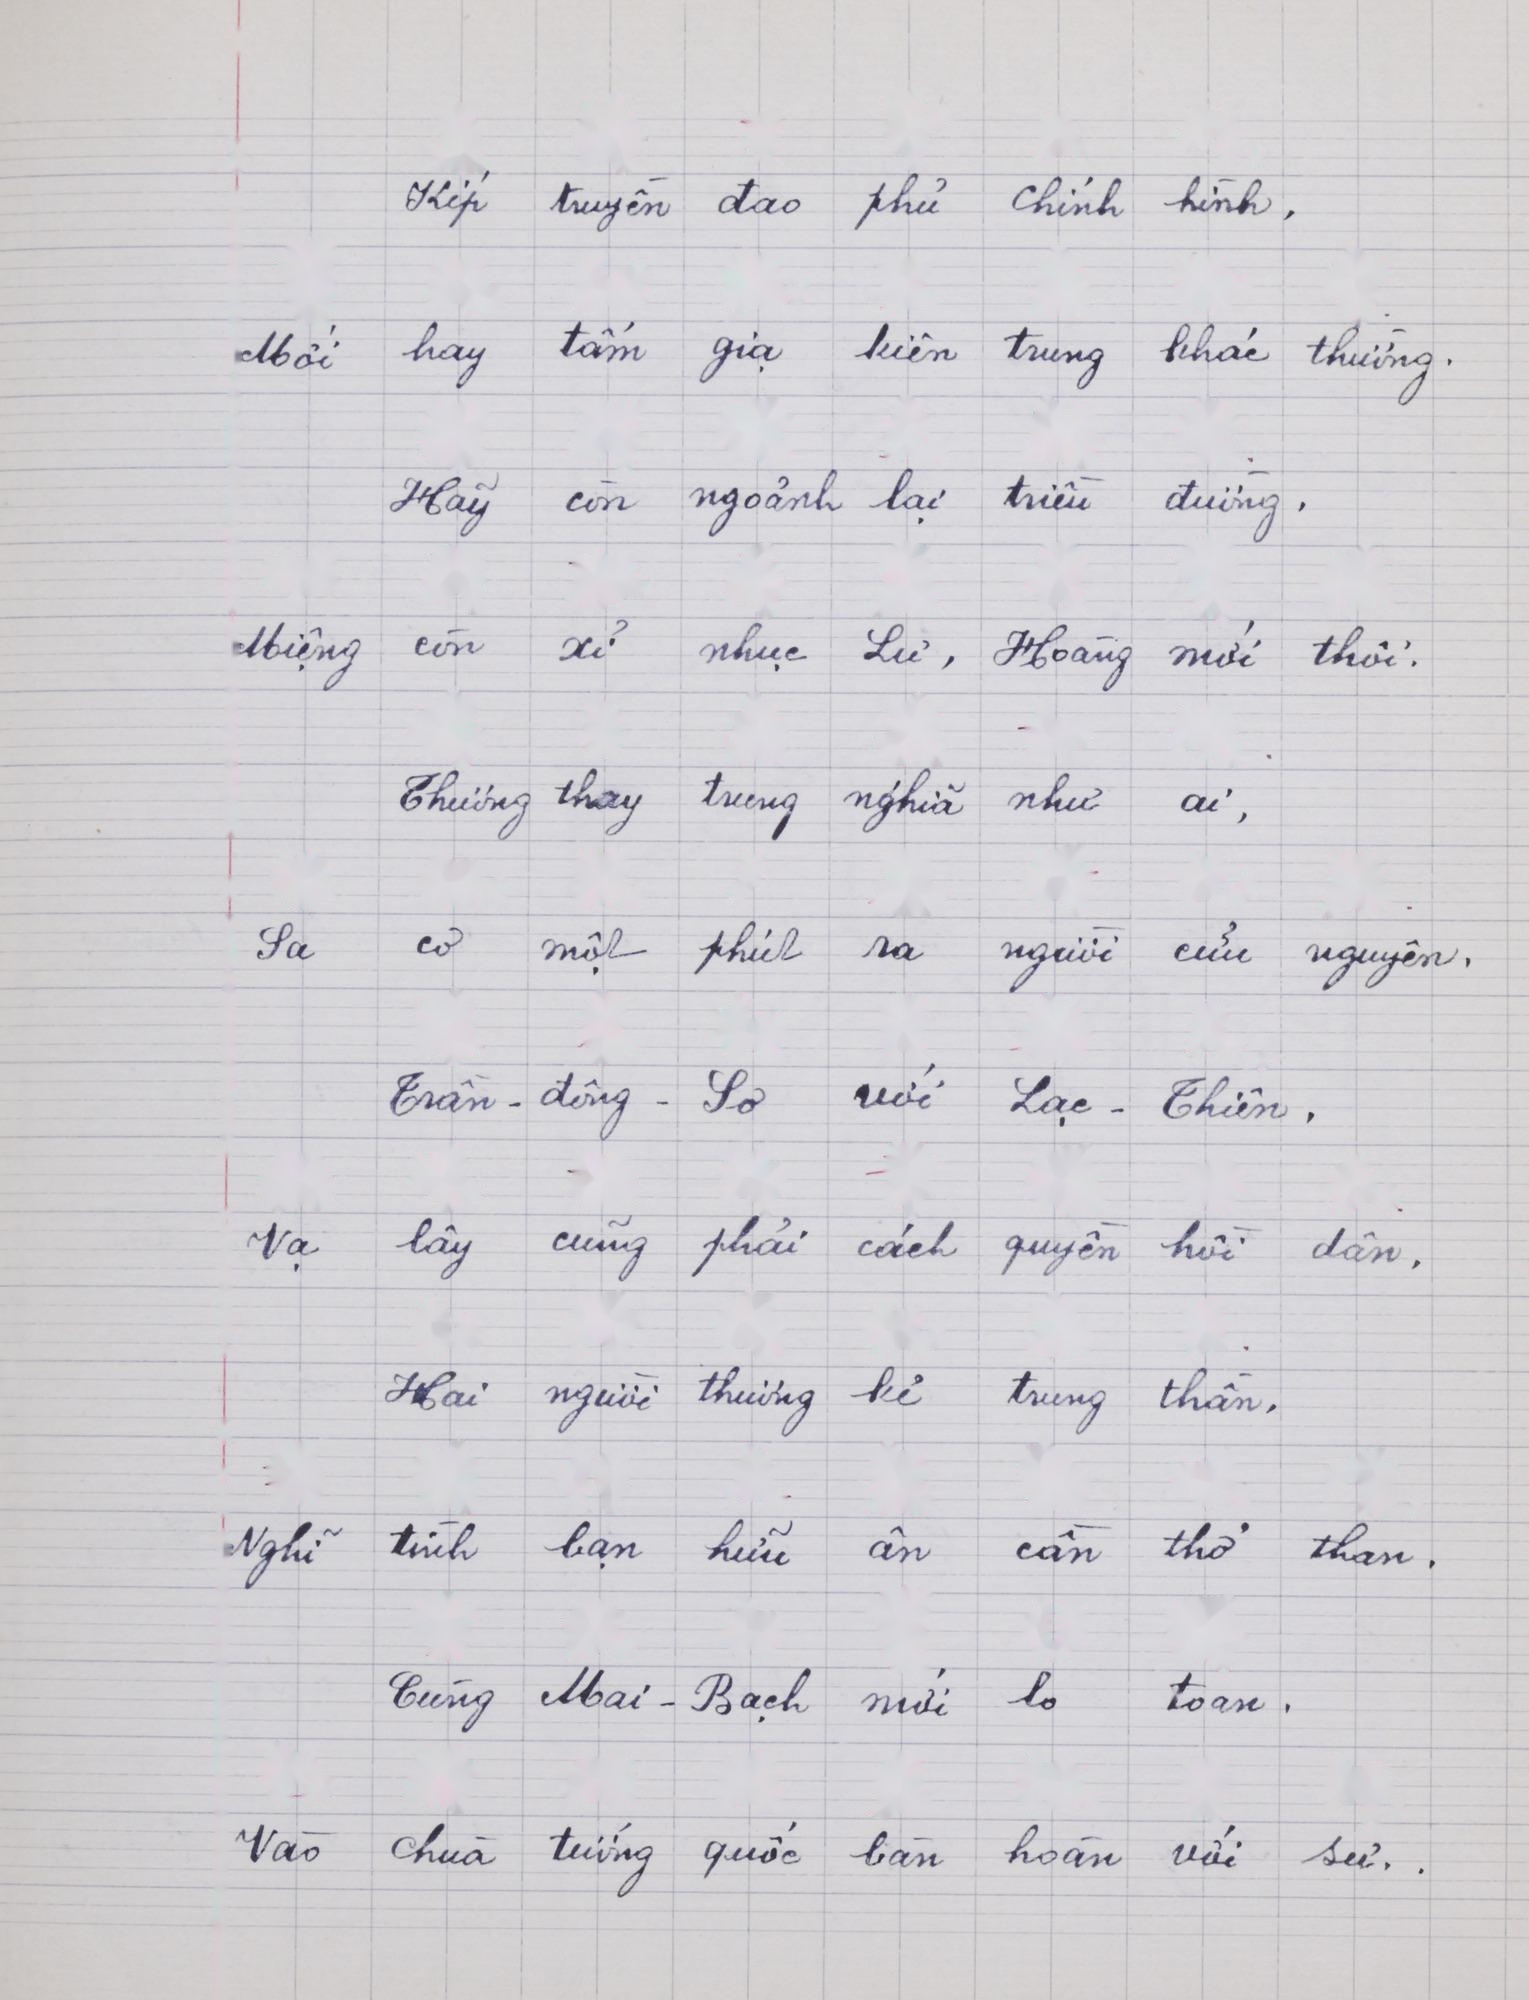 Kíp truyền đao phủ chính hình,
Mới hay tấm giạ kiên trung khác thường.
Hãy còn ngoảnh lại triều đường,
Miệng còn xỉ nhục Lư, Hoàng mới thôi.
Thương thay trung nghĩa như ai,
Sa cơ một phút ra người cửu nguyên.
Trần - đông - Sơ với Lạc - Thiên,
Vạ lây cũng phải cách quyền hồi dân,
Hai người thương kẻ trung thần,
Nghĩ tình bạn hữu ân cần thở than.
Cùng Mai - Bạch mới lo toan.
Vào chùa tướng quốc bàn hoàn với sư. .